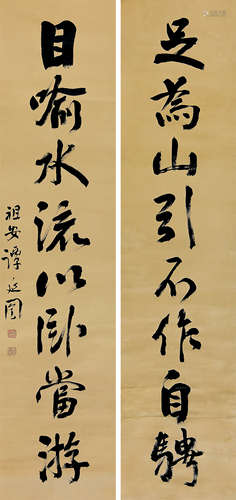 足為山引不作自騁
目喻水流以臥當游
祖安譚延闓